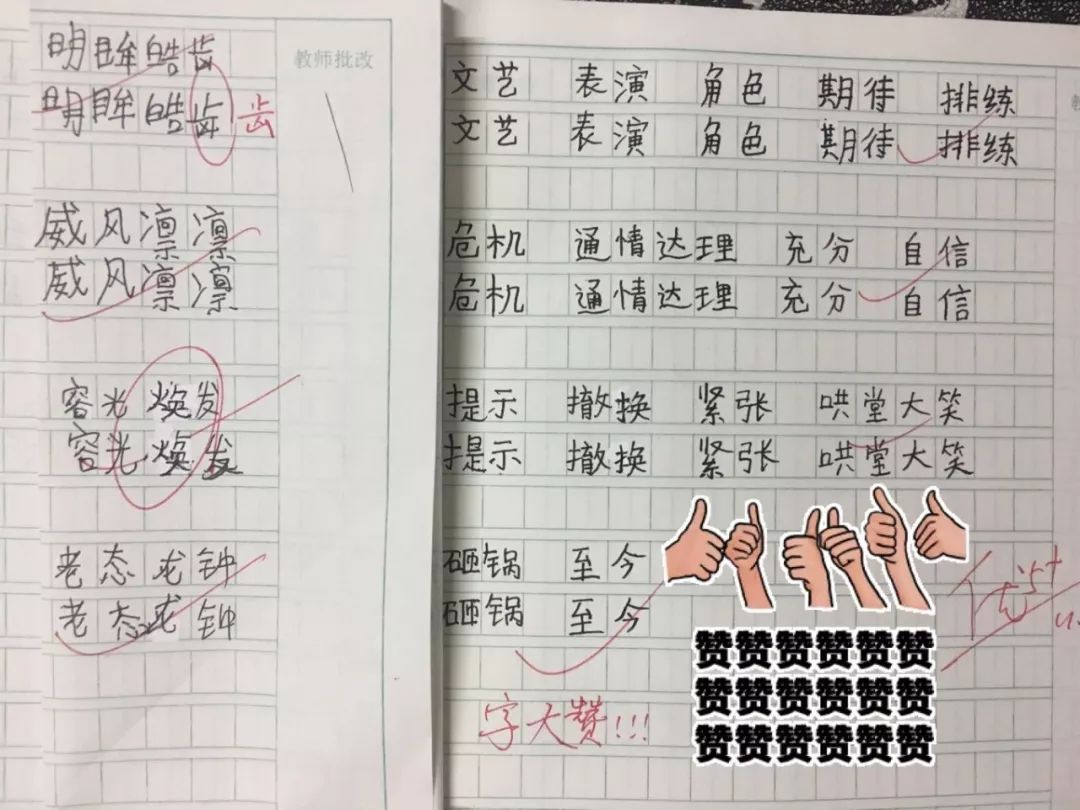 教师批改
明眸皓齿
明眸皓齿 齿
威风凛凛
威风凛凛
容光焕发
容光焕发
老态龙钟
老态龙钟
文艺 表演 角色 期待 排练
文艺 表演 角色 期待 排练
危机 通情达理 充分 自信
危机 通情达理 充分 自信
提示 撤换 紧张 哄堂大笑
提示 撤换 紧张 哄堂大笑
砸锅 至今
砸锅 至今
优+
字大赞!!!
赞赞赞赞赞赞
赞赞赞赞赞赞
赞赞赞赞赞赞